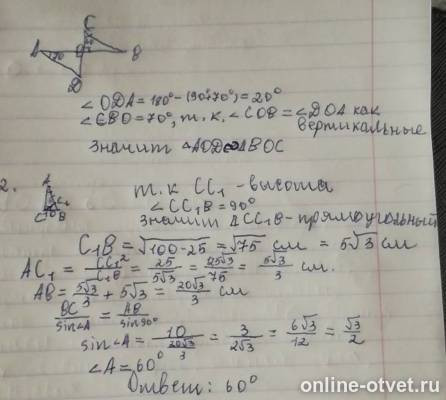 C
A O B
70°
D
∠ODA = 180° - (90°+70°) = 20°
∠CBO = 70°, т.к. ∠COB = ∠DOA как
вертикальные
Значит △AOD ∾ △BOC
2.
A
C₁
C 10 B
т.к CC₁ - высота
∠CC₁B = 90°
Значит △CC₁B - прямоугольный
C₁B = √100-25 = √75 см = 5√3 см
AC₁ = CC₁²/C₁B = 25/5√3 = 125√3/75 = 5√3/3 см.
AB = 5√3/3 + 5√3 = 20√3/3 см
BC/sin∠A = AB/sin90°
sin∠A = 10/(20√3/3) = 3/2√3 = 6√3/12 = √3/2
∠A = 60°
Ответ: 60°
online-otvet.ru